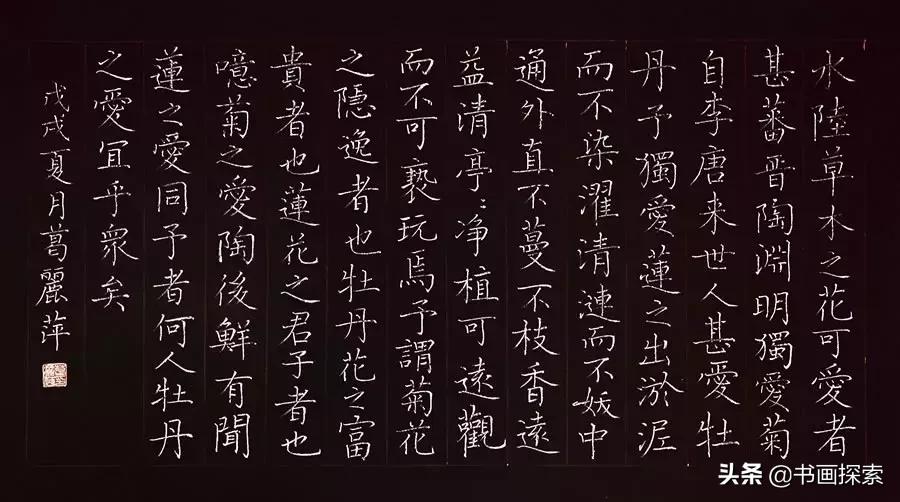 水陸草木之花可愛者
甚蕃晋陶淵明獨愛菊
自李唐来世人甚愛牡
丹予獨愛蓮之出淤泥
而不染濯清漣而不妖中
通外直不蔓不枝香遠
益清亭〻净植可遠觀
而不可褻玩焉予謂菊花
之隱逸者也牡丹花之富
貴者也蓮花之君子者也
噫菊之愛陶後鮮有聞
蓮之愛同予者何人牡丹
之愛宜乎衆矣
戊戌夏月葛麗萍
头条 @书画探索